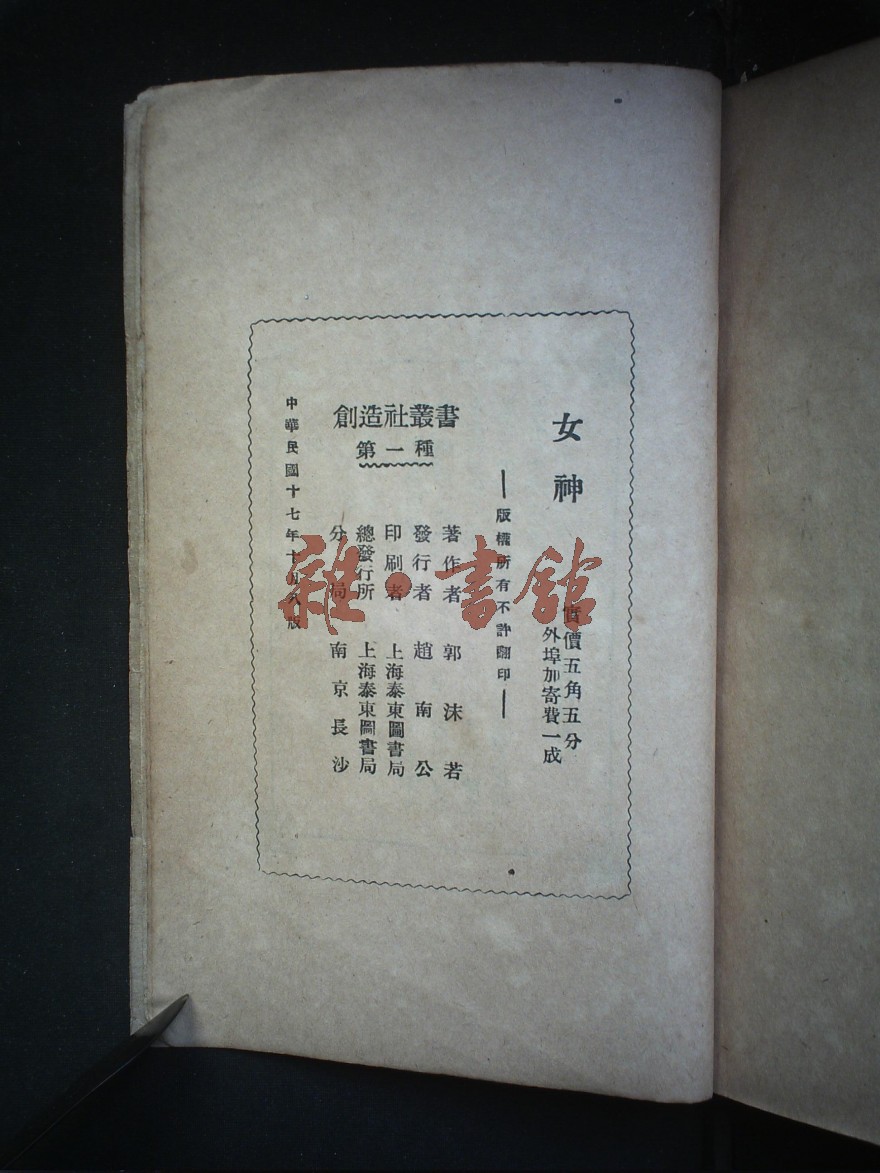 女神
實價五角五分
外埠加寄費一成
版權所有不許翻印
著作者 郭沫若
發行者 趙南公
印刷者 上海泰東圖書局
總發行所 上海泰東圖書局
分局 南京長沙
創造社叢書
第一種
中華民國十七年十月八版
雜·書館